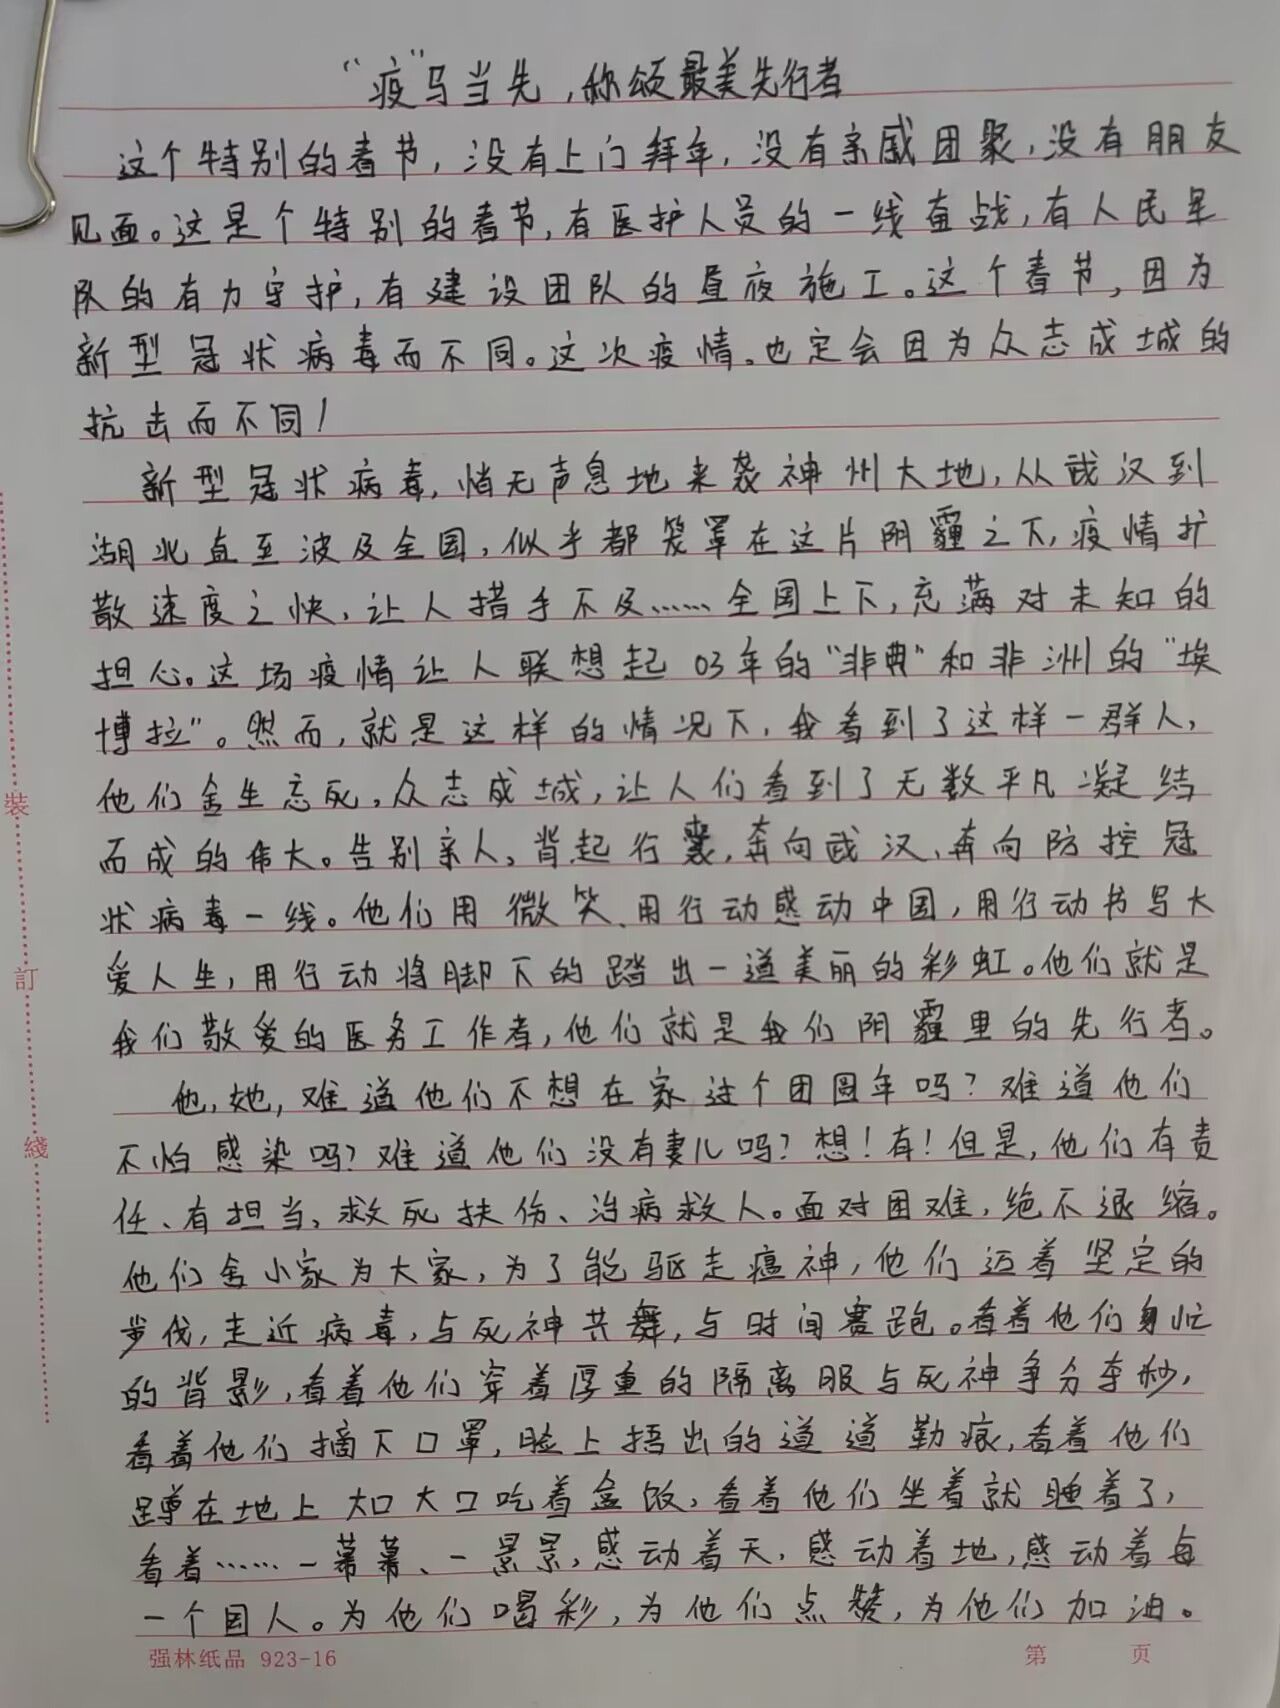 “疫”马当先，称颂最美先行者
这个特别的春节，没有上门拜年，没有亲戚团聚，没有朋友
见面。这是个特别的春节，有医护人员的一线奋战，有人民军
队的有力守护，有建设团队的昼夜施工。这个春节，因为
新型冠状病毒而不同。这次疫情，也定会因为众志成城的
抗击而不同！
新型冠状病毒，悄无声息地来袭神州大地，从武汉到
湖北直至波及全国，似乎都笼罩在这片阴霾之下，疫情扩
散速度之快，让人措手不及……全国上下，充满对未知的
担心。这场疫情让人联想起03年的“非典”和非洲的“埃
博拉”。然而，就是这样的情况下，我看到了这样一群人，
他们舍生忘死，众志成城，让人们看到了无数平凡凝结
而成的伟大。告别亲人，背起行囊，奔向武汉、奔向防控冠
状病毒一线。他们用微笑、用行动感动中国，用行动书写大
爱人生，用行动将脚下的踏出一道美丽的彩虹。他们就是
我们敬爱的医务工作者，他们就是我们阴霾里的先行者。
他，她，难道他们不想在家过个团圆年吗？难道他们
不怕感染吗？难道他们没有妻儿吗？想！有！但是，他们有责
任、有担当，救死扶伤、治病救人。面对困难，绝不退缩。
他们舍小家为大家，为了能驱走瘟神，他们迈着坚定的
步伐，走近病毒，与死神共舞，与时间赛跑。看着他们身忙
的背影，看着他们穿着厚重的隔离服与死神争分夺秒，
看着他们摘下口罩，脸上捂出的道道勒痕，看着他们
蹲在地上大口大口吃着盒饭，看着他们坐着就睡着了，
看着……一幕幕、一景景，感动着天，感动着地，感动着每
一个国人。为他们喝彩，为他们点赞，为他们加油。
裝
訂
綫
强林纸品 923-16
第 页